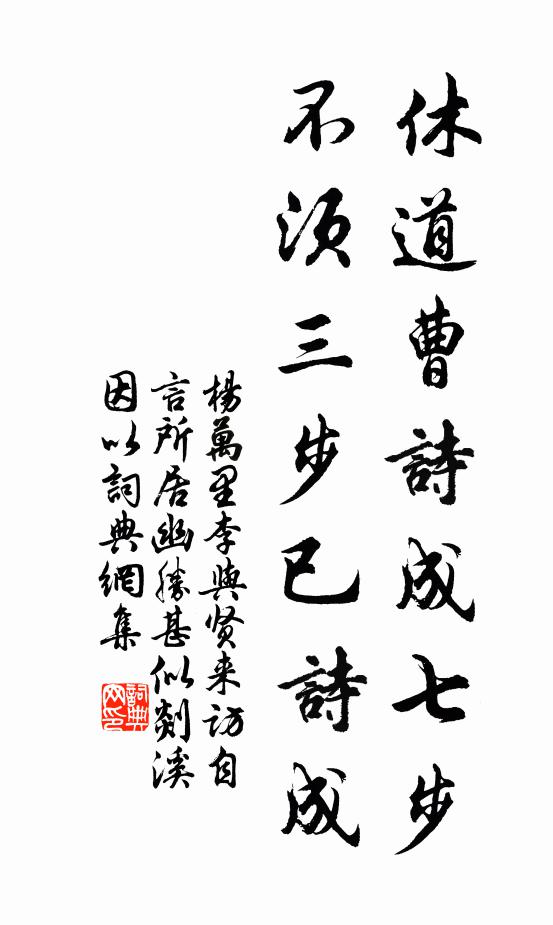 休道曹詩成七步
不須三步已詩成
楊萬里李與贤来訪自
言所居幽勝甚似剡溪
因以詞典網集
詞典
网印